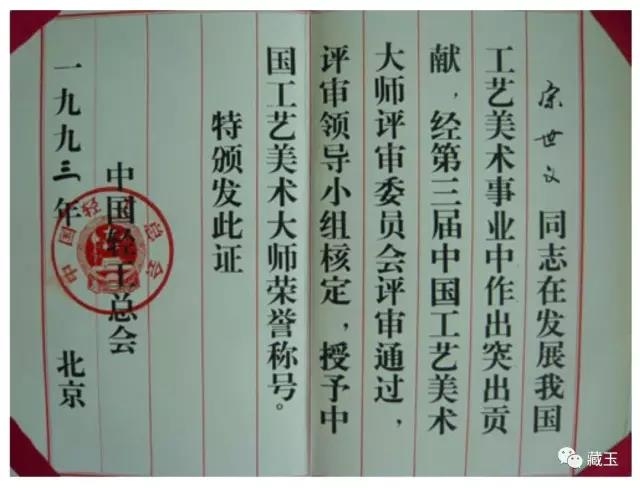 宋世义 同志在发展我国
工艺美术事业中作出突出贡
献，经第三届中国工艺美术
大师评审委员会评审通过，
评审领导小组核定，授予中
国工艺美术大师荣誉称号。
特颁发此证
中国轻工总会
中国轻工总会
一九九三年 北京
藏玉